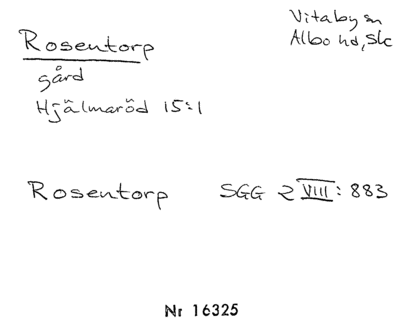 Rosentorp
gård
Hjälmaröd 15:1
Vitaby sn
Albo hd, Sk
Rosentorp SGG 2 VIII: 883
Nr 16325